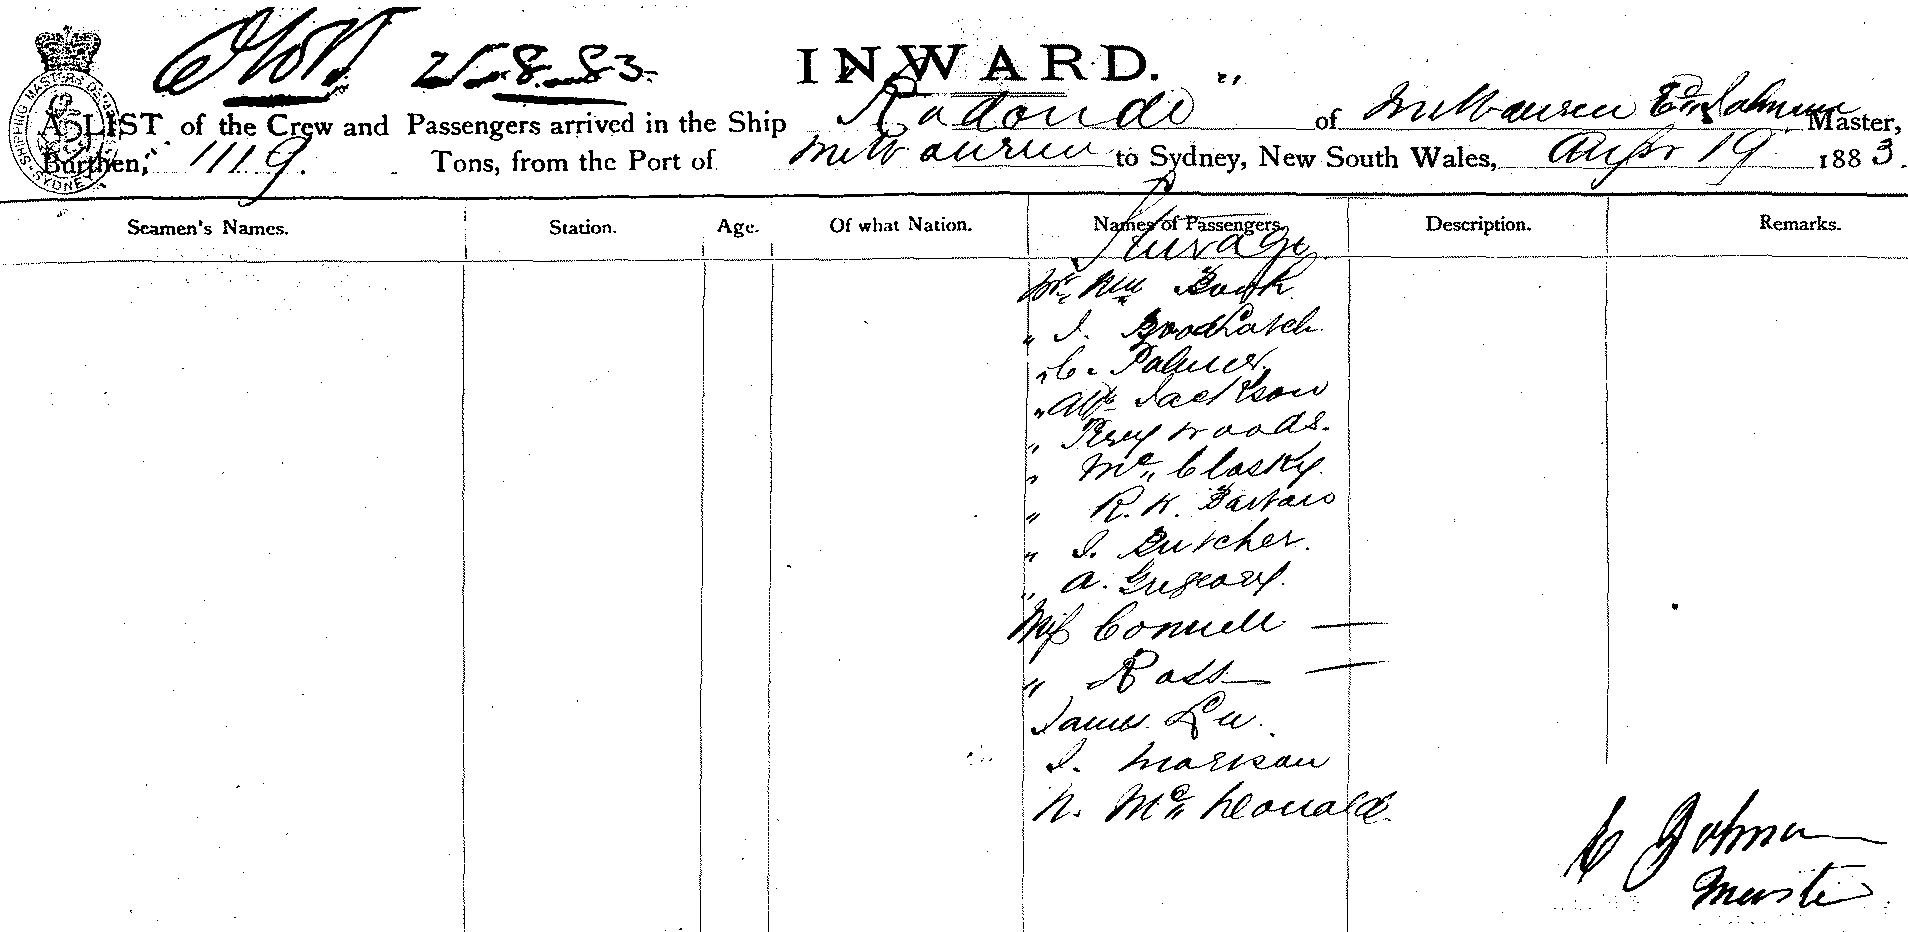 25.8.83.
INWARD.
A LIST of the Crew and Passengers arrived in the Ship Rodondo of Melbourne Master,
Burthen, 1119. Tons, from the Port of Melbourne to Sydney, New South Wales, 19 1883.
SHIPPING MASTERS SYDNEY
Seamen's Names. Station. Age. Of what Nation. Names of Passengers. Description. Remarks.
Steerage
Mr. Wm Book
" J. Broadhatch
" C. Palmer
" Alf. Jackson
" Percy Woods.
" Mc Closky.
" R. K.
" J. Butcher.
" A. Gregory.
Miss Connell —
" Ross —
James Lee.
J. Morison
N. Mc Donald.
Master